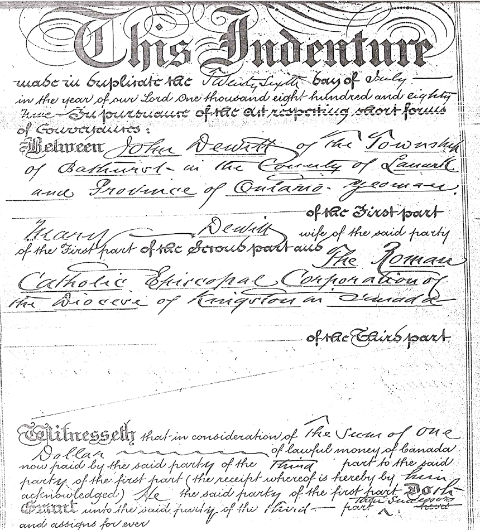 This Indenture
made in duplicate the Twenty Sixth day of July
in the year of our Lord one thousand eight hundred and eighty
nine In pursuance of the act respecting short forms
of Conveyances:
Between John Dewitt of the Township
of Bathurst in the County of Lanark
and Province of Ontario. yeoman.
of the First part
Mary Dewitt wife of the said party
of the First part of the Second part and The Roman
Catholic Episcopal Corporation of
the Diocese of Kingston in Canada
of the Third part
Witnesseth that in consideration of The Sum of One
Dollar of lawful money of Canada
now paid by the said party of the Third part to the said
party of the first part (the receipt whereof is hereby by him
acknowledged) He the said party of the first part Doth
Grant unto the said party of the third part
and assigns for ever